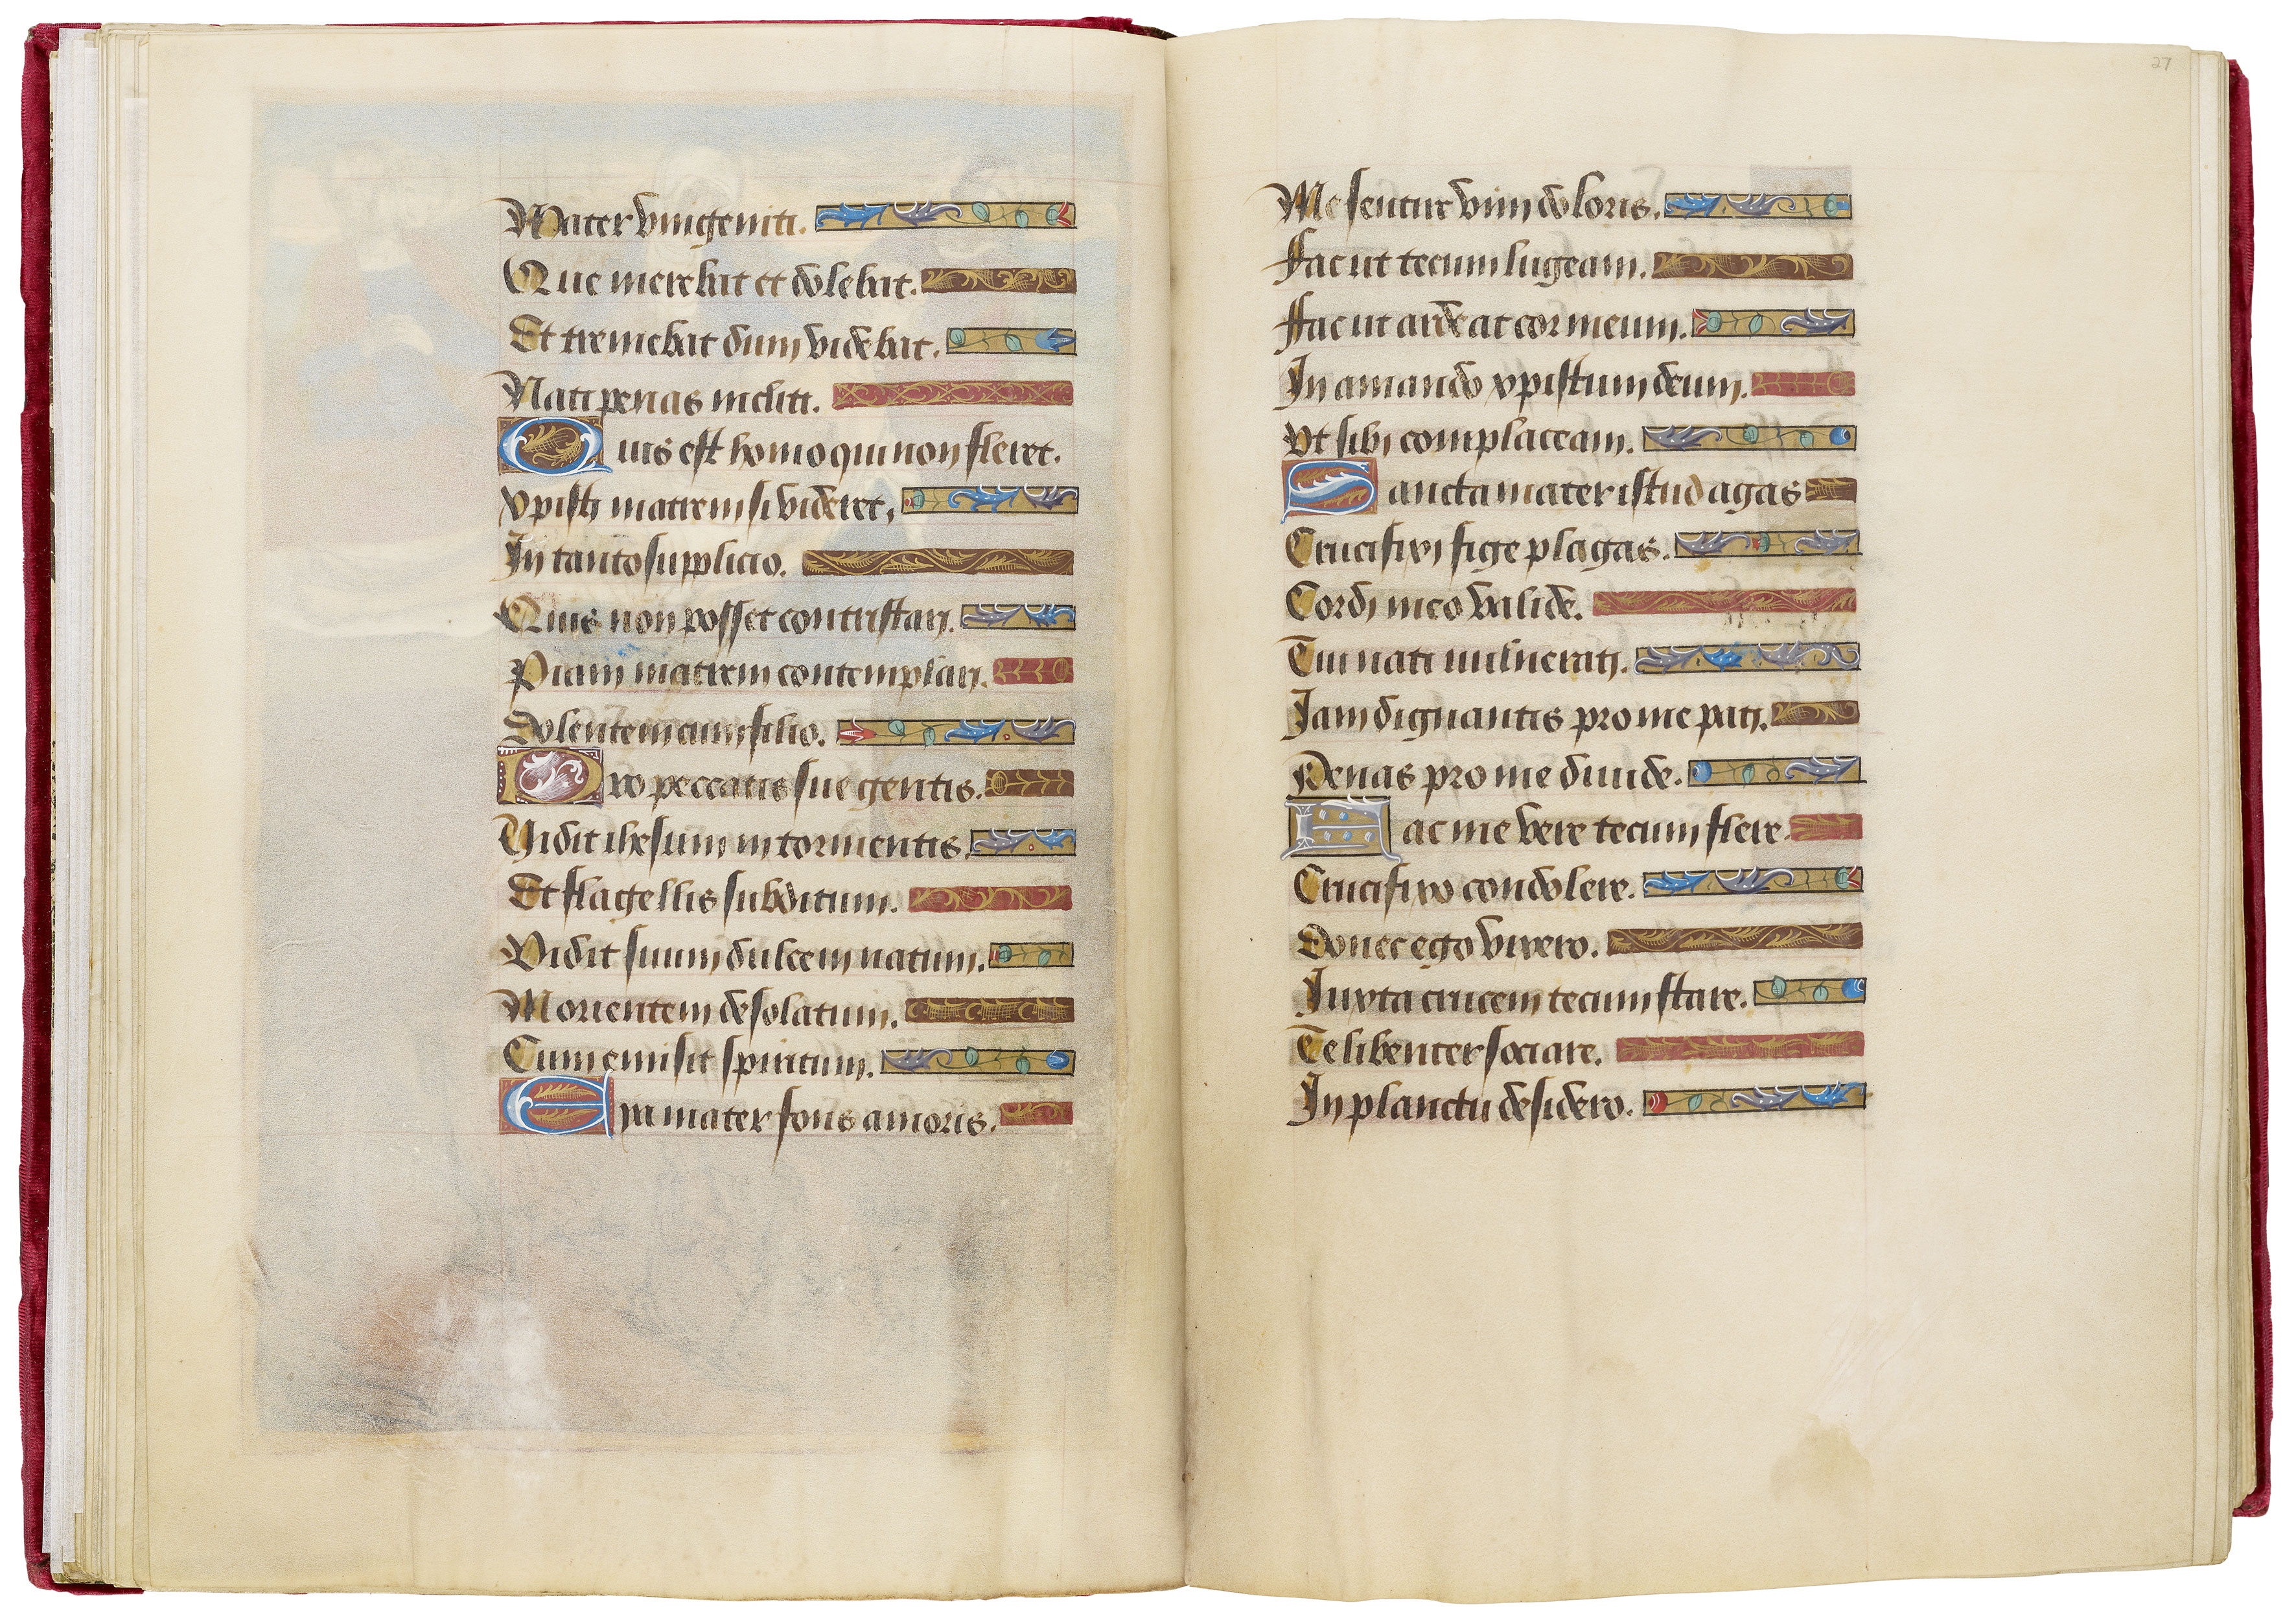 Mater vnigeniti.
Que merebat et dolebat.
Et tremebat dum videbat.
Nati penas incliti.
Quis est homo qui non fleret.
xpisti matrem si videret,
In tanto supplicio.
Quis non posset contristari.
Piam matrem contemplari.
Dolentem cum filio.
Pro peccatis sue gentis.
Vidit ihesum in tormentis.
Et flagellis subditum.
Vidit suum dulcem natum.
Morientem desolatum.
Cum emisit spiritum.
Eya mater fons amoris.
27
Me sentire vim doloris.
Fac ut tecum lugeam.
Fac ut ardeat cor meum.
In amando xpistum deum.
Vt sibi complaceam.
Sancta mater istud agas
Crucifixi fige plagas.
Cordi meo valide.
Tui nati uulnerati.
Iam dignantis pro me pati.
Penas pro me diuide.
Fac me vere tecum flere.
Crucifixo condolere.
Donec ego vixero.
Iuxta crucem tecum stare.
Te libenter sociare.
In planctu desidero.